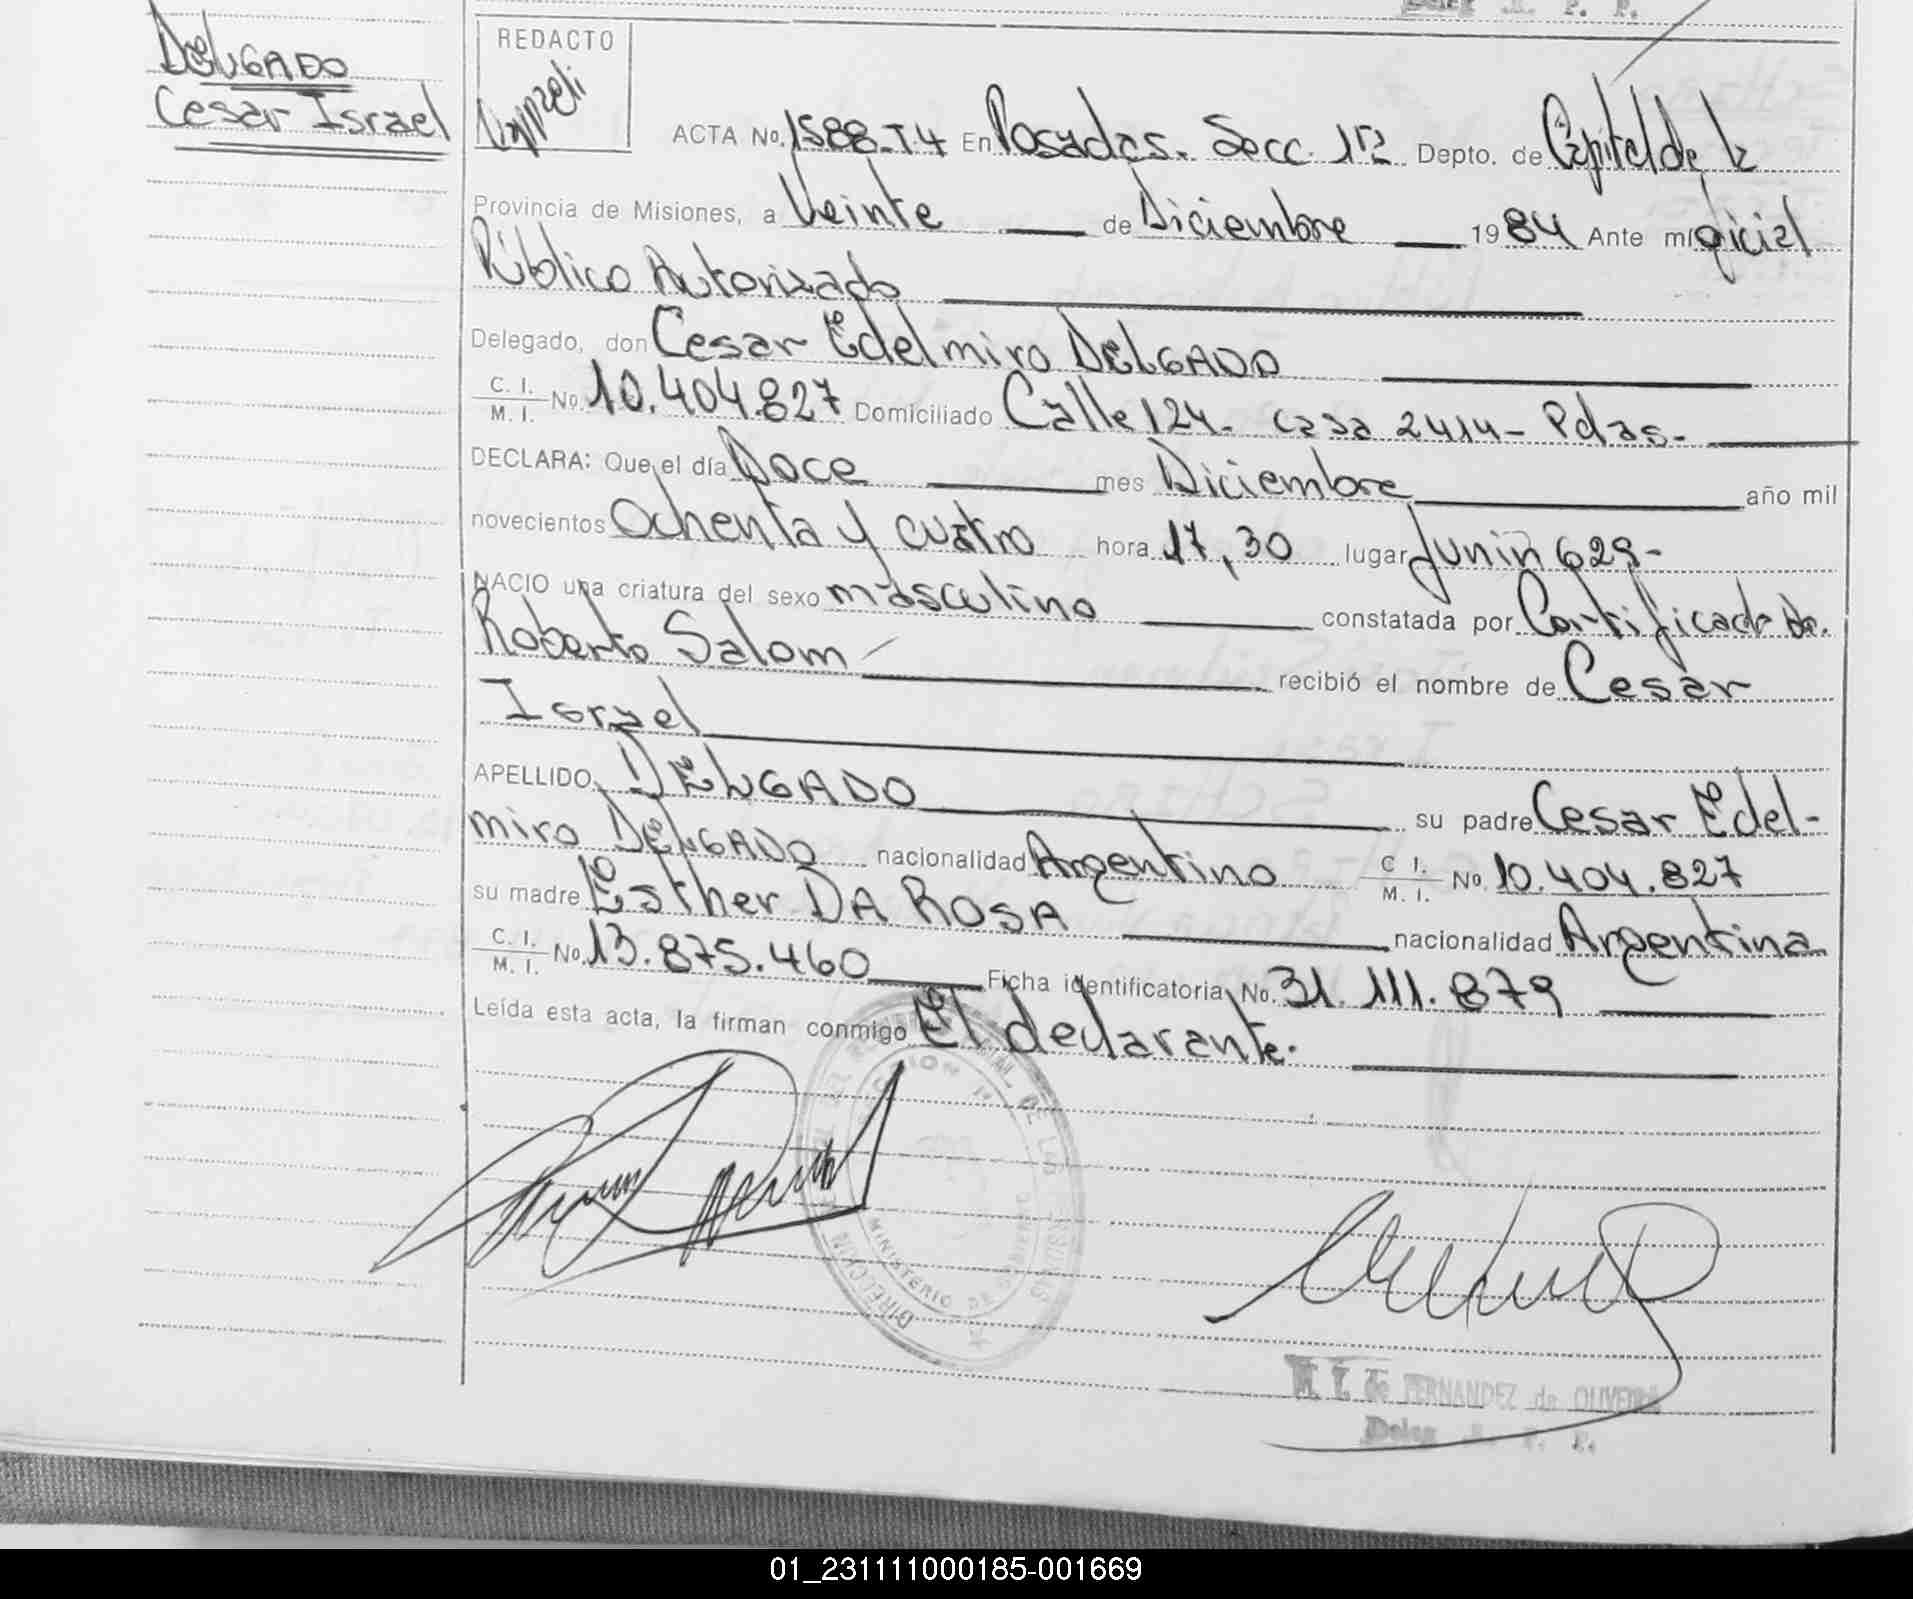 DELGADO
Cesar Israel
REDACTO
ACTA No. 1588-T4 En Posadas. Secc. 1ra Depto. de Capital de la
Provincia de Misiones, a Veinte de Diciembre 1984 Ante mí oficial
Público Autorizado
Delegado, don Cesar Edelmiro DELGADO
C. I. / M. I. No. 10.404.827 Domiciliado Calle 124. casa 2414 - Pdas-
DECLARA: Que el día Doce mes Diciembre año mil
novecientos Ochenta y cuatro hora 17,30 lugar Junin 629-
NACIO una criatura del sexo masculino constatada por Certificado de.
Roberto Salom recibió el nombre de Cesar
Israel
APELLIDO DELGADO su padre Cesar Edel-
miro DELGADO nacionalidad Argentino C I. / M. I. No. 10.404.827
su madre Esther DA ROSA nacionalidad Argentina
C. I. / M. I. No. 13.875.460 Ficha identificatoria No. 31.111.879
Leída esta acta, la firman conmigo El declarante.
MINISTERIO DE GOBIERNO
M. I. de FERNANDEZ de OLIVEIRA
Deleg R. P. P.
01_231111000185-001669